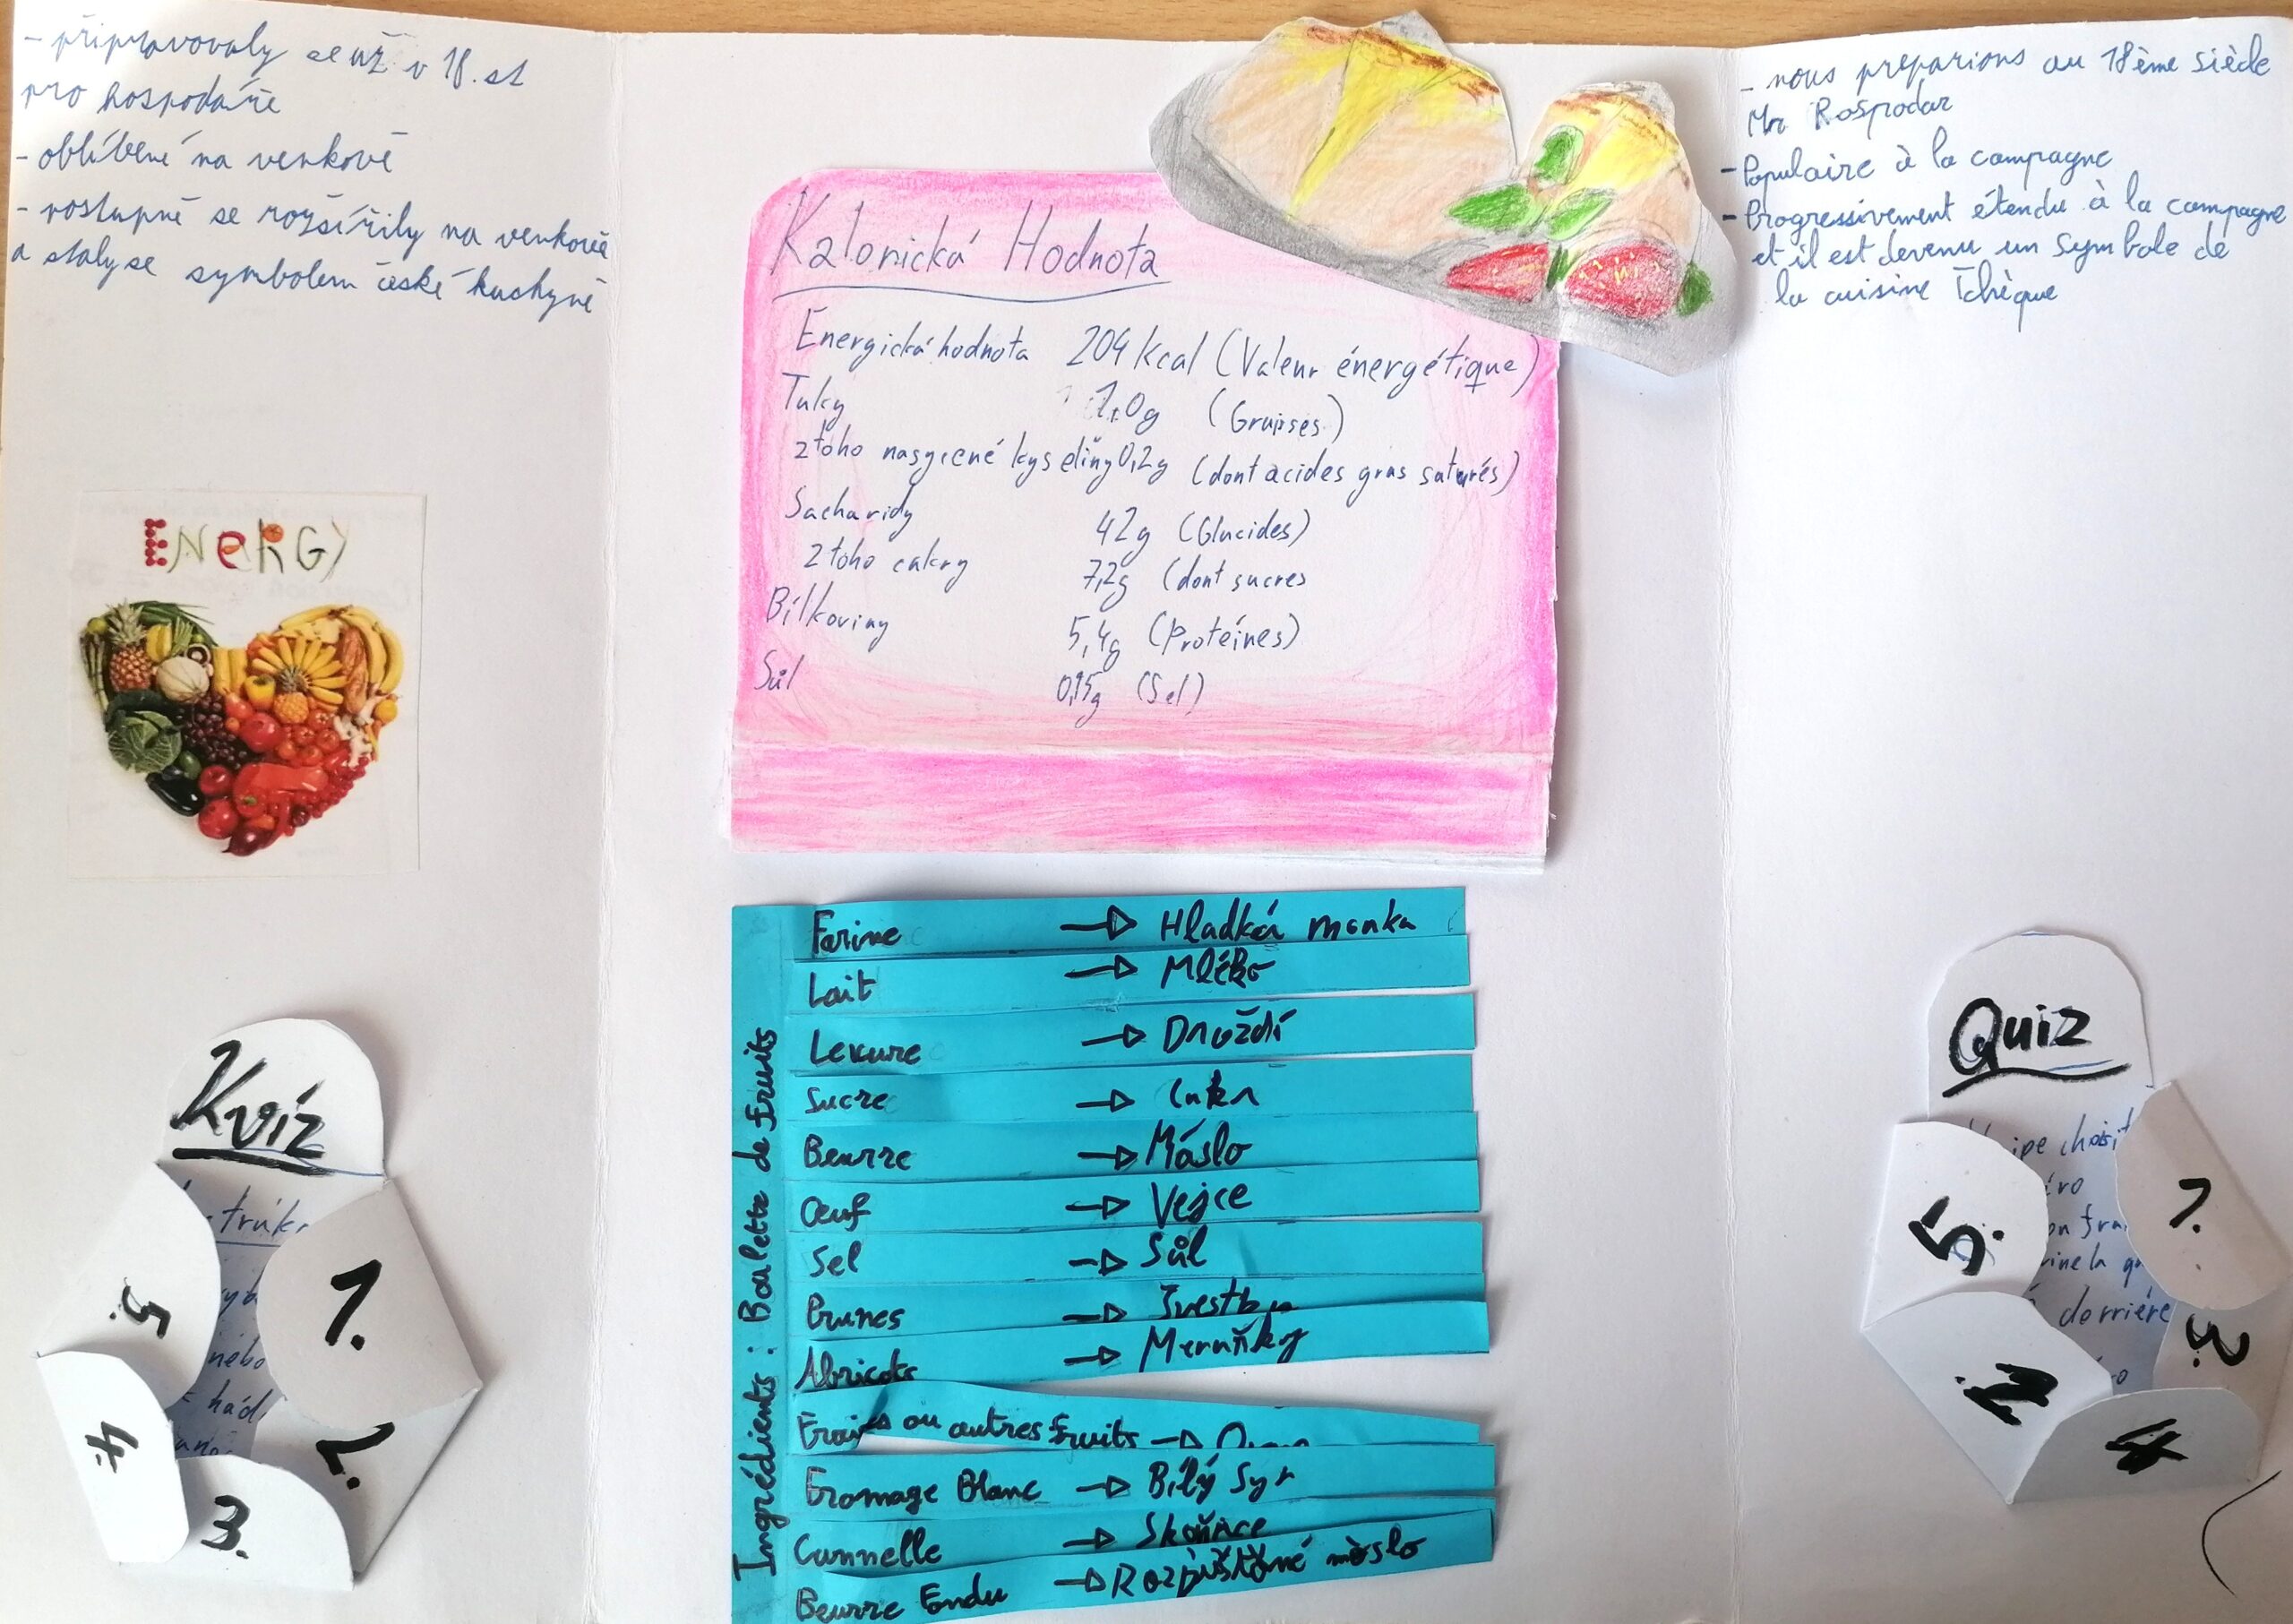 - připravovaly se už v 18. st
pro hospodáře
- oblíbené na venkově
- postupně se rozšířily na venkově
a staly se symbolem české kuchyně
ENERGY
Kvíz
1.
2.
3.
4.
5.
Kalorická Hodnota
Energická hodnota 204 kcal (Valeur énergétique)
Tuky 1,0g (Graisses)
z toho nasycené kyseliny 0,2g (dont acides gras saturés)
Sacharidy 42g (Glucides)
z toho cukry 7,2g (dont sucres
Bílkoviny 5,4g (Protéines)
Sůl 0,15g (Sel)
Ingrédients : Boulette de fruits
Farine → Hladká mouka
Lait → Mléko
Levure → Droždí
Sucre → Cukr
Beurre → Máslo
Œuf → Vejce
Sel → Sůl
Prunes → Švestky
Abricots → Meruňky
Fraises ou autres fruits →
Fromage Blanc → Bílý Syr
Cannelle → Skořice
Beurre Fondu → Rozpuštěné máslo
- nous préparions au 18ème siècle
Mr Rospodar
- Populaire à la campagne
- Progressivement étendu à la campagne
et il est devenu un symbole de
la cuisine Tchèque
Quiz
1.
2.
3.
4
5.
derriére